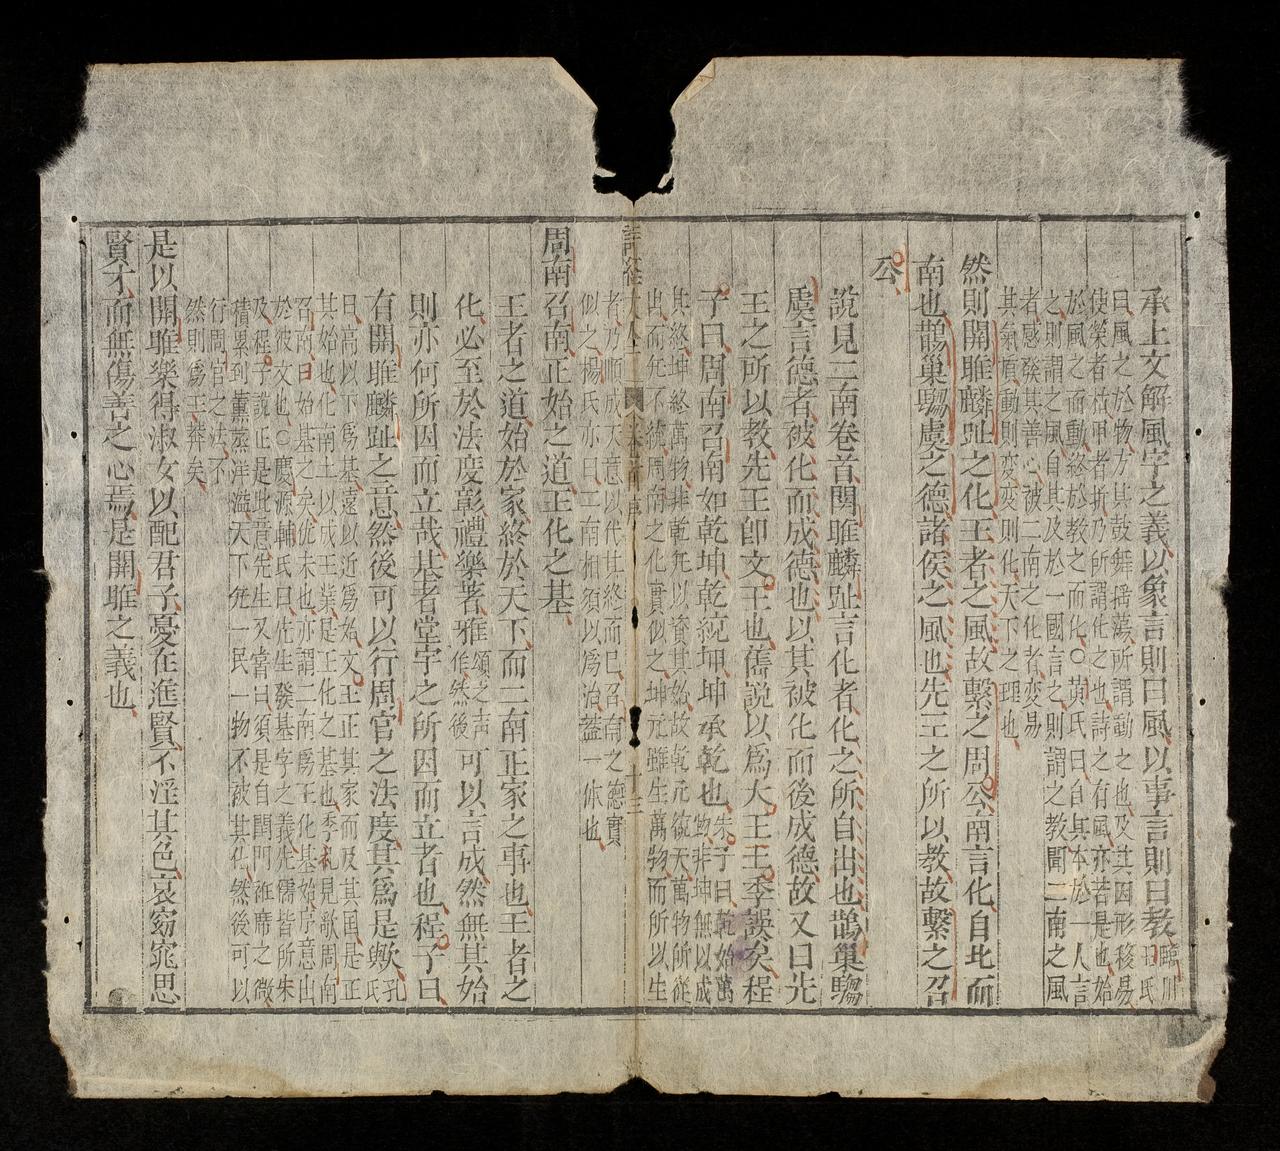 承上文解風字之義以象言則曰風以事言則曰教臨川王氏
曰風之於物方其鼓舞搖蕩所謂動之也及其因形移易
使榮者枯甲者拆乃所謂化之也詩之有風亦若是也始
於風之而動終於教之而化○黃氏曰自其本於一人言
之則謂之風自其及於一國言之則謂之教聞二南之風
者感發其善心被二南之化者變易
其氣質動則變變則化天下之理也
然則關雎麟趾之化王者之風故繫之周公南言化自北而
南也鵲巢騶虞之德諸侯之風也先王之所以教故繫之召
公
說見二南卷首關雎麟趾言化者化之所自出也鵲巢騶
虞言德者被化而成德也以其被化而後成德故又曰先
王之所以教先王卽文王也舊說以爲大王王季誤矣程
子曰周南召南如乾坤乾統坤坤承乾也朱子曰乾始萬
物非坤無以成
其終坤終萬物非乾无以資其始故乾元統天萬物所從
出而无不統周南之化實似之坤元雖生萬物而所以生
詩經大全 卷首序 十三
者乃順成天意以代其終而已召南之德實
似之楊氏亦曰二南相須以爲治蓋一体也
周南召南正始之道王化之基
王者之道始於家終於天下而二南正家之事也王者之
化必至於法度彰禮樂著雅頌之声作然後可以言成然無其始
則亦何所因而立哉基者堂宇之所因而立者也程子曰
有關雎麟趾之意然後可以行周官之法度其爲是歟孔氏
曰高以下爲基遠以近爲始文王正其家而及其国是正
其始也化南土以成王業是王化之基也季札見歌周南
召南曰始基之矣犹未也亦謂二南爲王化基始序意出
於彼文也○慶源輔氏曰先生發基字之義先儒皆所未
及程子說正是此意先生又嘗曰須是自閨門袵席之微
積累到薰蒸洋溢天下无一民一物不被其化然後可以
行周官之法不
然則爲王莽矣
是以關雎樂得淑女以配君子憂在進賢不淫其色哀窈窕思
賢才而無傷善之心焉是關雎之義也